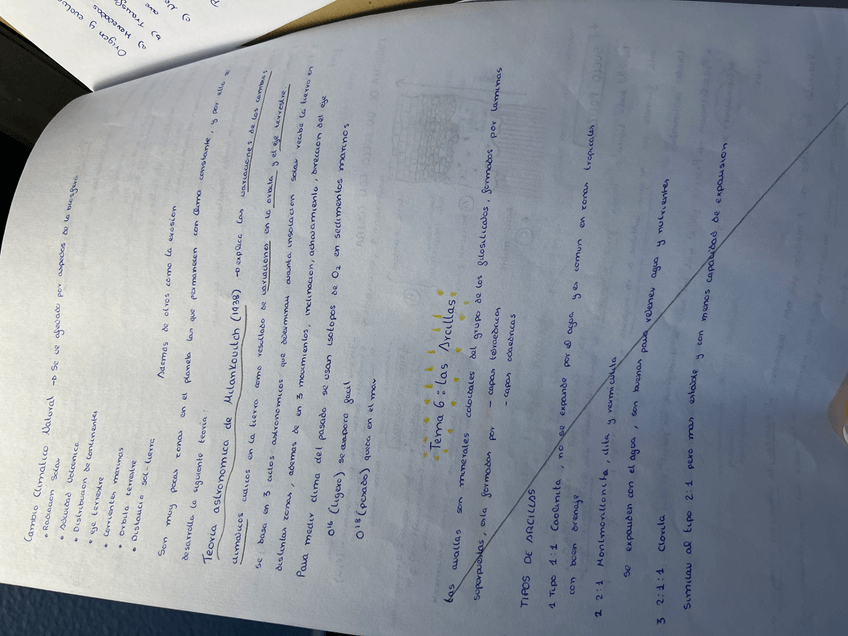 Origen y evolu
a) Heredados
b) Transf
c) Ne
Cambio Climatico Natural → Se ve afectado por aspectos de la biosfera
• Radiacion Solar
• Actividad Volcanica
• Distribucion de continentes
• eje terrestre
• corrientes marinas
• Orbita terrestre
• Distancia sol-tierra
Ademas de otros como la erosion
Son muy pocas zonas en el planeta las que permanecen con clima constante, y por ello se
desarrolla la siguiente teoria:
Teoria astronomica de Milankovitch (1938) → explica las variaciones de los cambios
climaticos ciclicos en la tierra como resultado de variaciones en la orbita y el eje terrestre.
se basa en 3 ciclos astronomicos que determinan cuanta insolacion solar recibe la tierra en
distintas zonas, ademas de en 3 movimientos, inclinacion, achatamiento, direccion del eje
Para medir clima del pasado se usan isotopos de O2 en sedimentos marinos
O16 (ligero) se evapora facil
O18 (pesado) queda en el mar
Tema 6: Las Arcillas
Las arcillas son minerales coloidales del grupo de los filosilicatos, formados por laminas
superpuestas, esta formadas por - capas tetraedricas
- capas octaedricas
TIPOS DE ARCILLAS
1 Tipo 1:1 Caolinita, no se expande por el agua y es comun en zonas tropicales
con buen drenaje
2 2:1 Montmorillonita, ilita y vermiculita
Se expanden con el agua, son buenas para retener agua y nutrientes
3 2:1:1 Clorita
Similar al tipo 2:1 pero mas estable y con menos capacidad de expansion